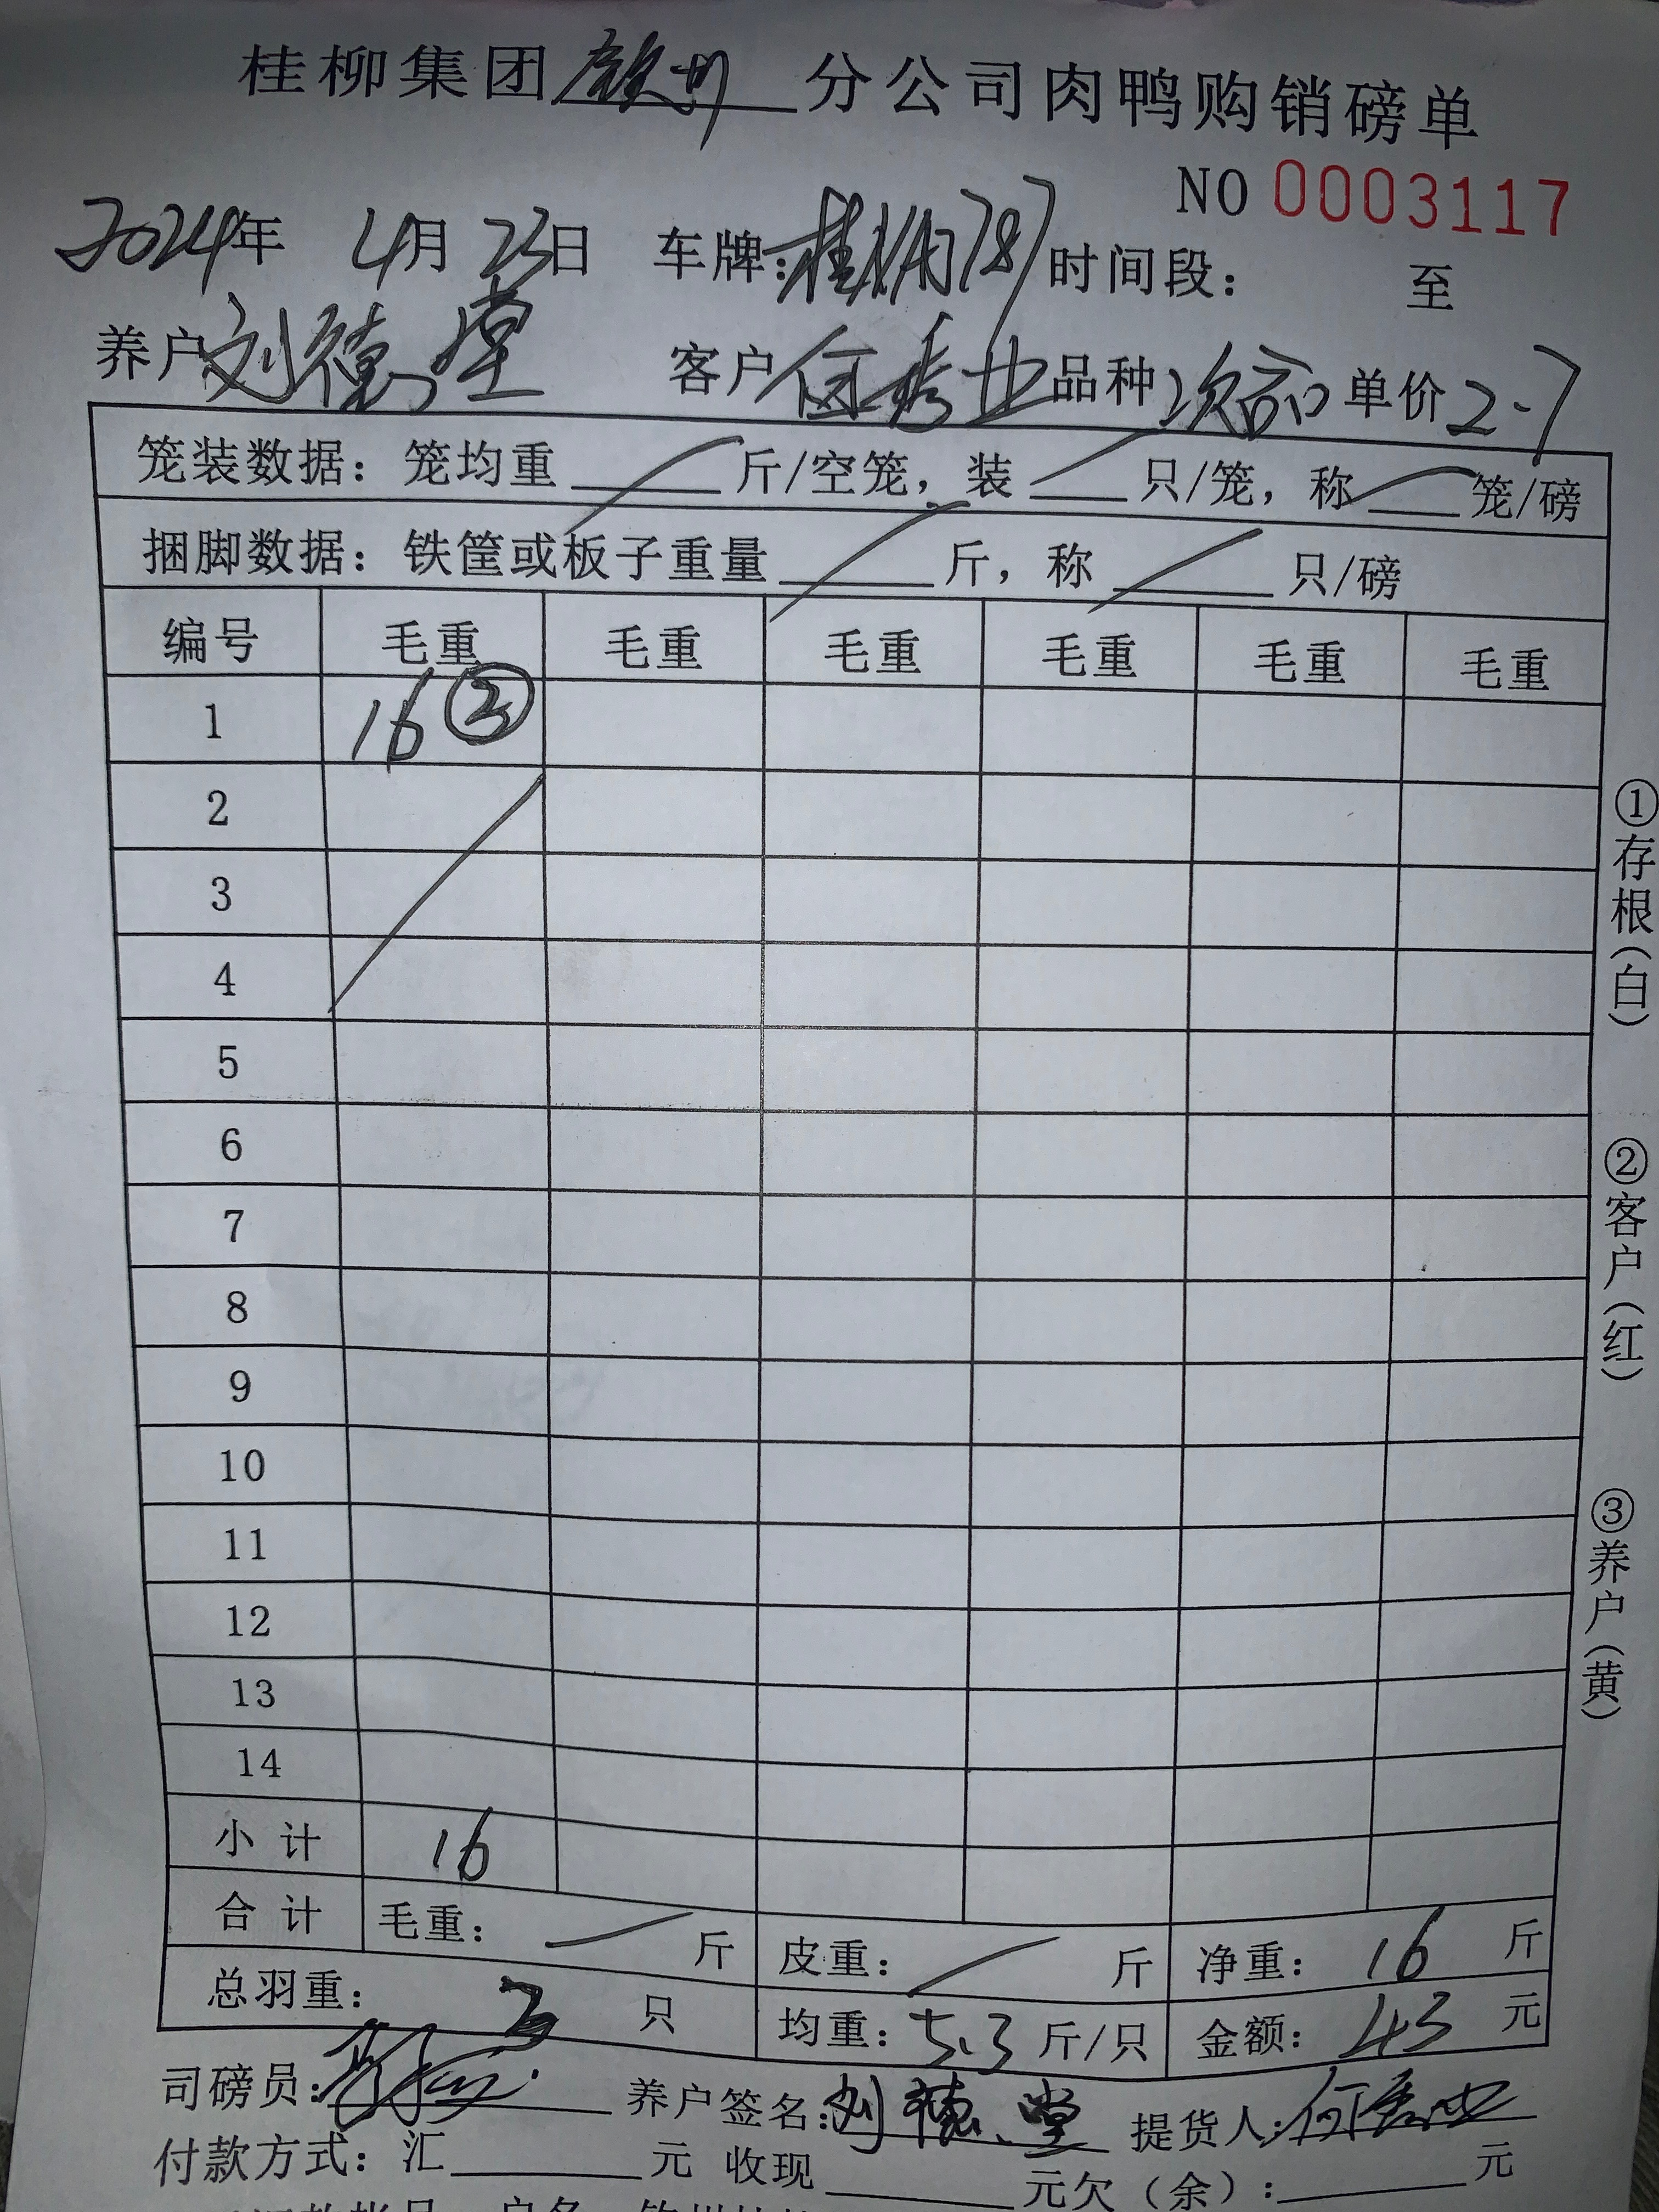 桂柳集团钦州分公司肉鸭购销磅单
NO 0003117
2024年 4月 23日 车牌: 时间段: 至
养户刘德堂 客户何秀业品种次品单价2.7
笼装数据: 笼均重 斤/空笼, 装 只/笼, 称 笼/磅
捆脚数据: 铁筐或板子重量 斤, 称 只/磅
编号 毛重 毛重 毛重 毛重 毛重 毛重
1 16 ③
2
3
4
5
6
7
8
9
10
11
12
13
14
小计 16
合计 毛重: 斤 皮重: 斤 净重: 16 斤
总羽重: 3 只 均重: 5.3 斤/只 金额: 43 元
司磅员: 养户签名:刘德堂 提货人:何秀业
付款方式: 汇 元 收现 元欠(余): 元
①存根(白)
②客户(红)
③养户(黄)